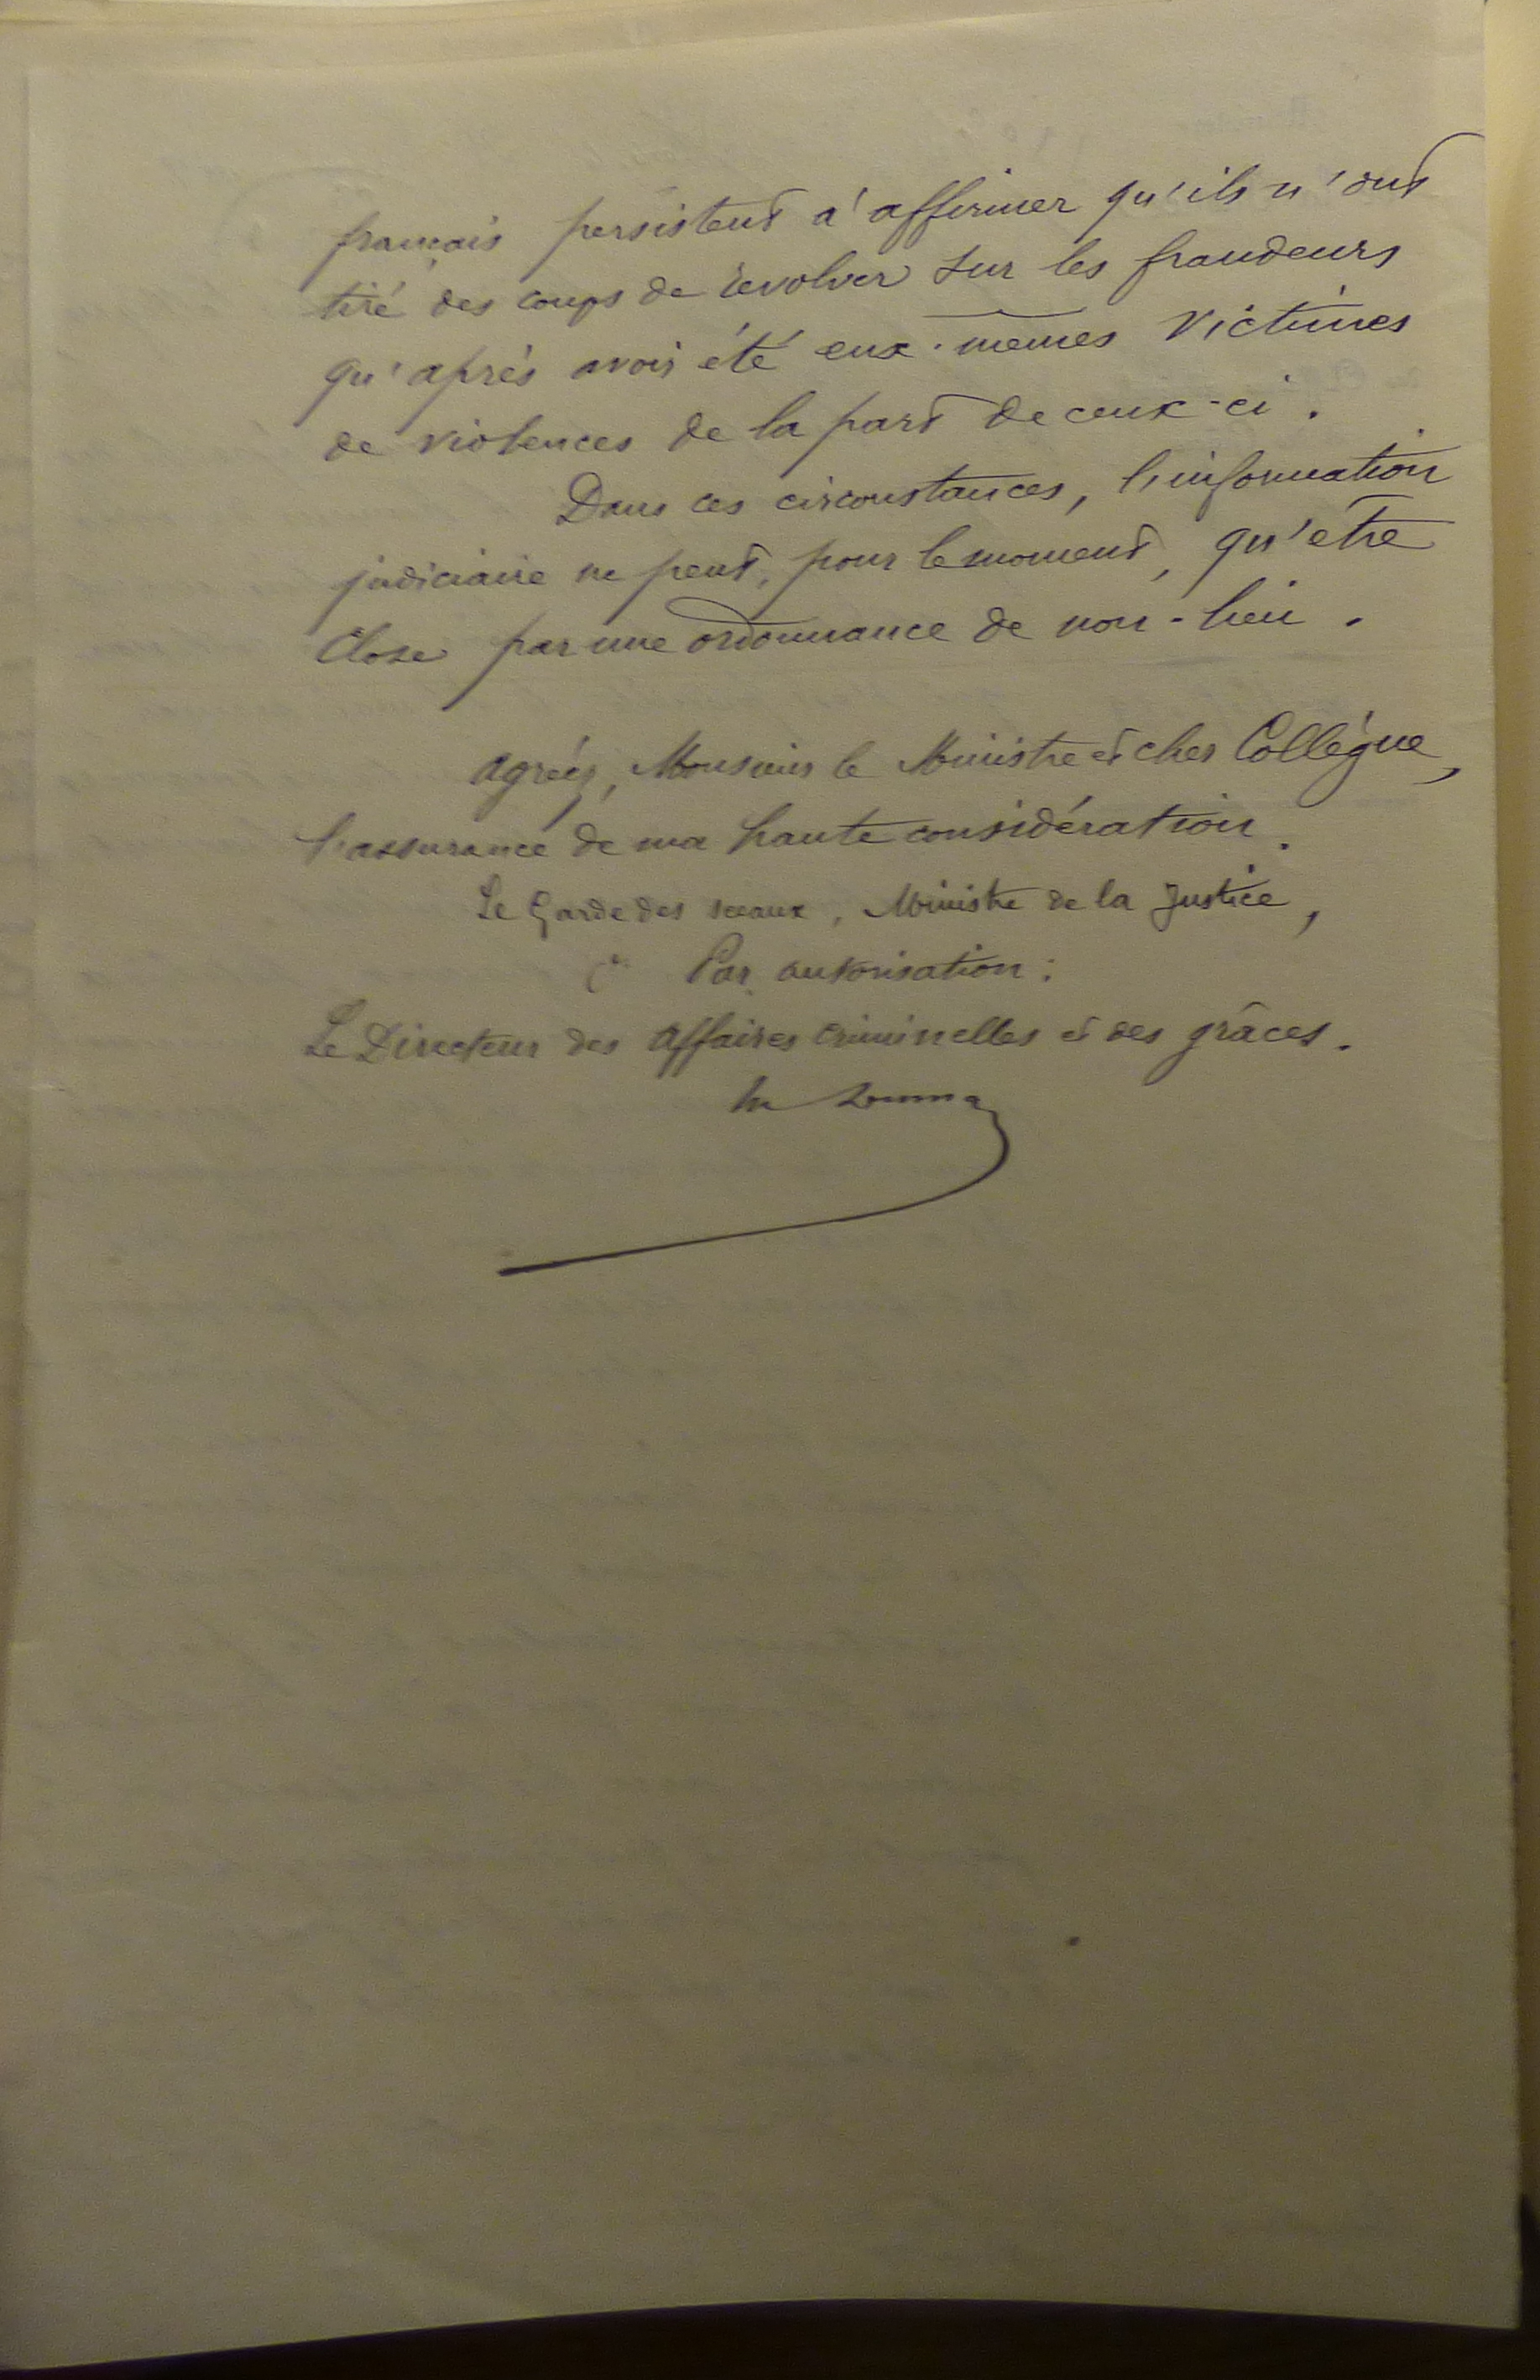 français persistent à affirmer qu'ils n'ont
tiré des coups de revolver sur les fraudeurs
qu'après avoir été eux-mêmes victimes
de violences de la part de ceux-ci.
Dans ces circonstances, l'information
judiciaire ne peut, pour le moment, qu'être
close par une ordonnance de non-lieu.
Agréez, Monsieur le Ministre et cher Collègue,
l'assurance de ma haute considération.
Le Garde des sceaux, Ministre de la Justice,
Par autorisation :
Le Directeur des affaires criminelles et des grâces.